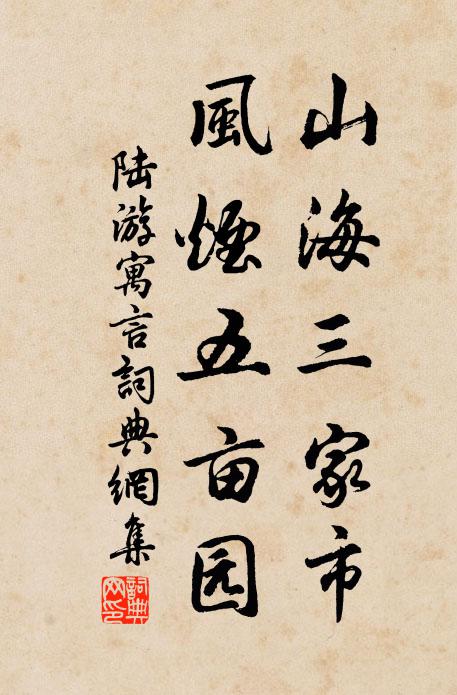 山海三家市
風煙五亩园
陆游寓言詞典網集
詞典